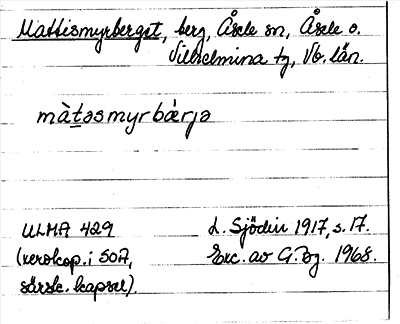 Mattismyrberget, berg, Åsele sn, Åsele o.
Vilhelmina tg, Vb. län.
màtəsmyrbærjə
ULMA 429
(xerokop. i SOA,
särsk. kapsel)
L. Sjödin 1917, s. 17.
Exc. av G. Bg. 1968.